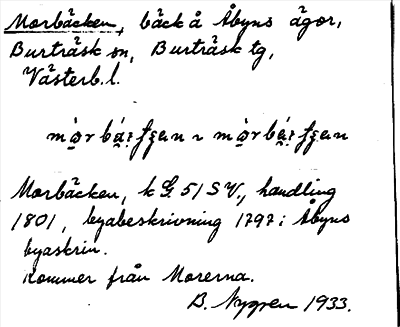 Morbäcken, bäck å Åbyns ägor,
Burträsk sn, Burträsk tg,
Västerb. l.
Morbäcken, k G. 51 SV, handling
1801, byabeskrivning 1797 i Åbyns
byaskrin.
Kommer från Morerna.
B. Nygren 1933.